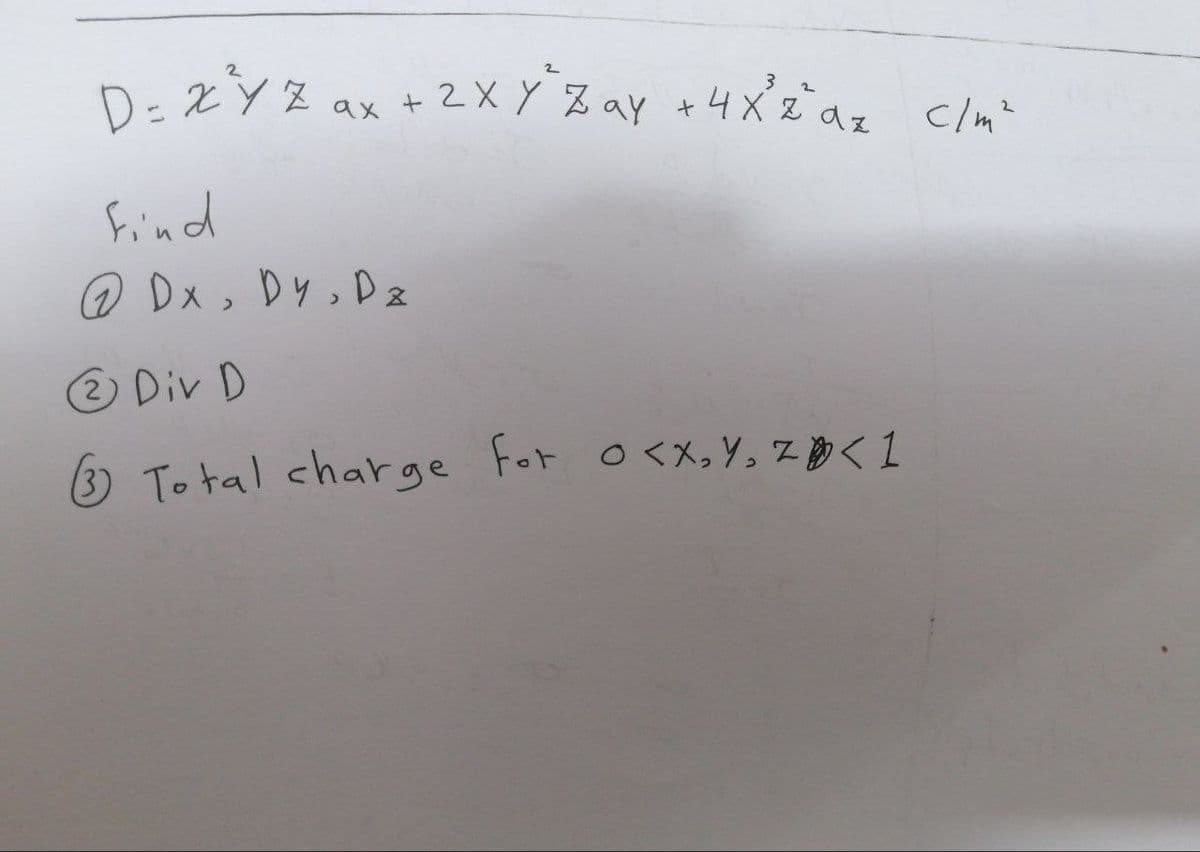 D = x²yz ax + 2xy²z ay + 4x³z² az C/m²
Find
① Dx, Dy, Dz
② Div D
③ Total charge for 0<x,y,z<1